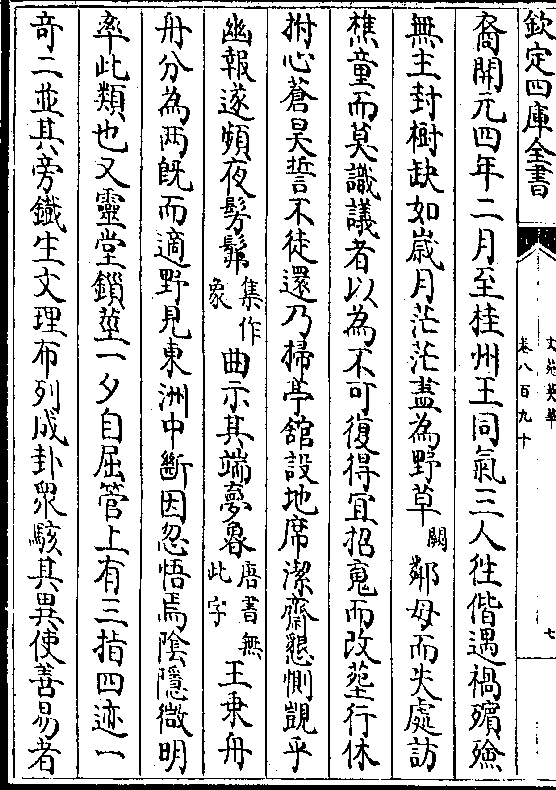 欽定四庫全書
文苑英華
卷八百九十
七
裔開元四年二月至桂州王同氣三人徃偕遇禍殯殮
無主封樹缺如嵗月茫茫盡為野草闕鄰母而失處訪
樵童而莫識議者以為不可復得宜招䰟而改塟行休
拊心蒼昊誓不徒還乃掃亭舘設地席潔齋懇惻覬乎
幽報遂頻夜髣髴集作象曲示其端夢毚唐書無此字王乗舟
舟分為兩既而適野見東洲中斷因忽悟焉陰隱微明
率此類也又靈堂鎻莖一夕自屈管上有三指四迹一
奇二並其旁鐵生文理布列成卦衆駭其異使善易者